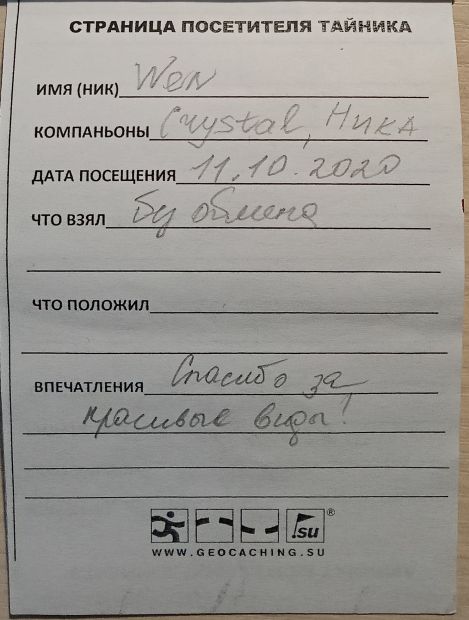 СТРАНИЦА ПОСЕТИТЕЛЯ ТАЙНИКА
ИМЯ (НИК) Wen
КОМПАНЬОНЫ Crystal, Ника
ДАТА ПОСЕЩЕНИЯ 11.10.2020
ЧТО ВЗЯЛ Бу обмена
ЧТО ПОЛОЖИЛ
ВПЕЧАТЛЕНИЯ Спасибо за
красивые виды!
.su ®
WWW.GEOCACHING.SU